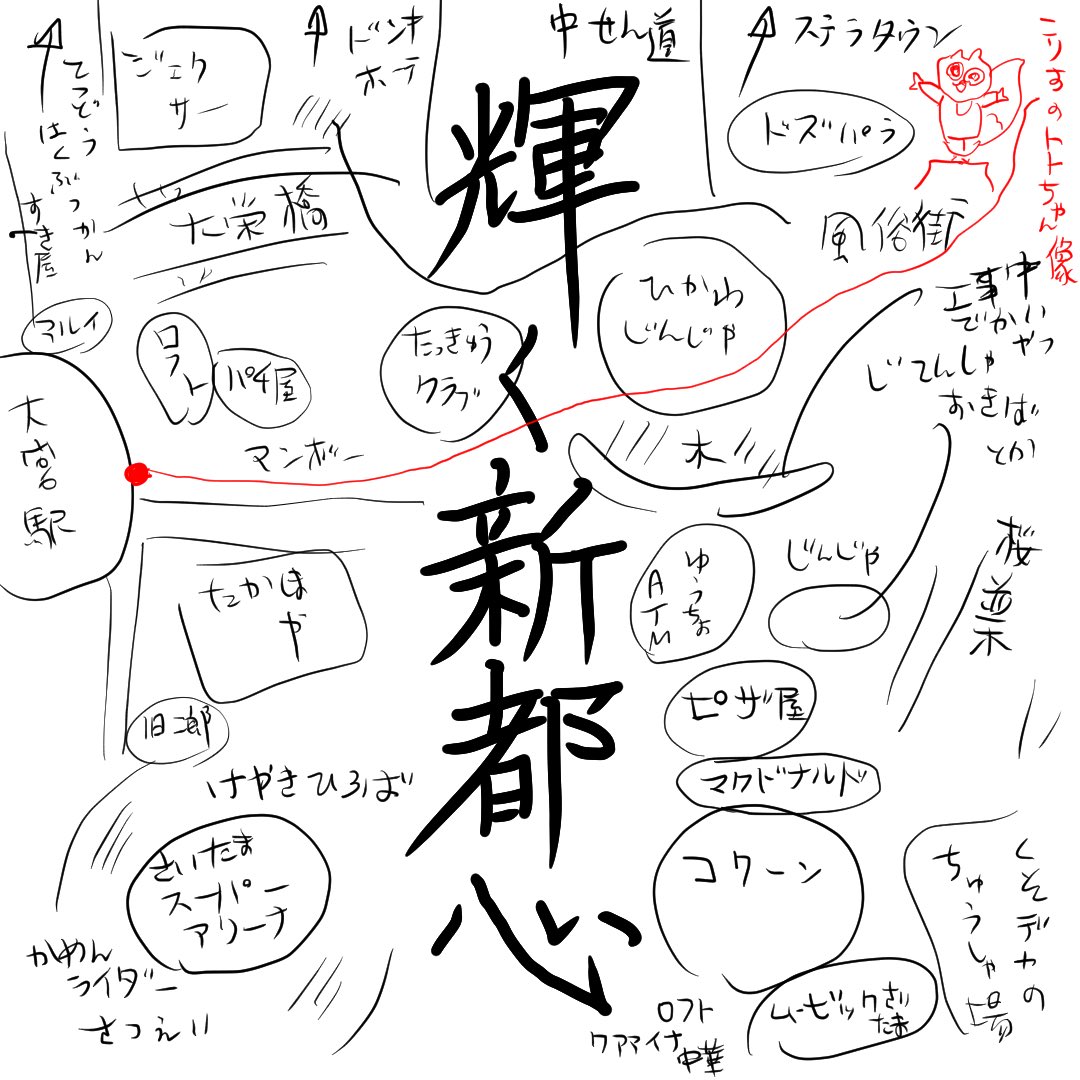 てつどう
はくぶつかん
すき屋
ジェク
サー
ドンキ
ホーテ
中せん道
ステラタウン
こりすのトトちゃん像
ドズパラ
大栄橋
風俗街
マルイ
ロフト
パチ屋
たっきゅう
クラブ
ひかわ
じんじゃ
工事中
でかい
やつ
じてんしゃ
おきば
とか
大宮駅
マンボー
木
輝く新都心
たかはや
ゆうちょ
ATM
じんじゃ
桜並木
旧二郎
ピザ屋
マクドナルド
けやきひろば
さいたま
スーパー
アリーナ
コクーン
くそデカの
ちゅうしゃ場
かめん
ライダー
さつえい
ロフト
クアアイナ
中華
ムービックさい
たま